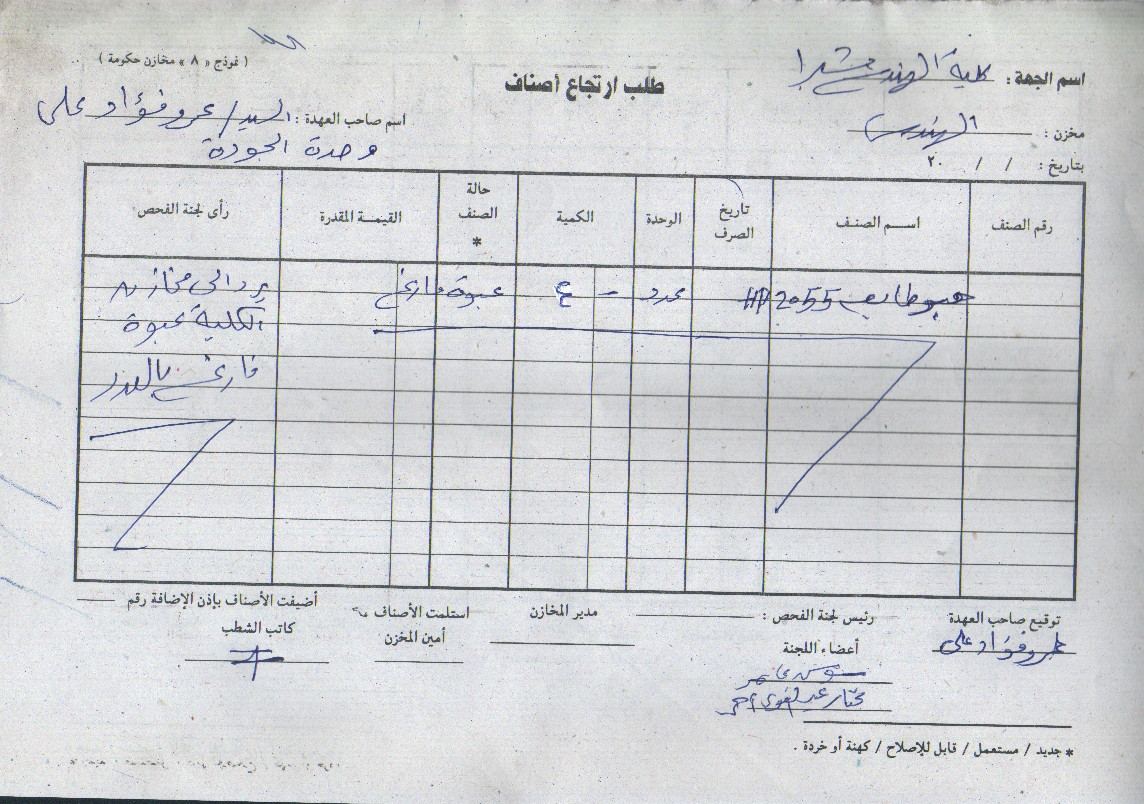 ( نموذج « ٨ » مخازن حكومة )
اسم الجهة : كلية الهندسة بشبرا
طلب ارتجاع أصناف
اسم صاحب العهدة : السيد / عمرو فؤاد على
وحدة الجودة
مخزن : الهندسى
بتاريخ : / / ٢٠
رقم الصنف
اســـم الصنـف
تاريخ الصرف
الوحدة
الكمية
حالة الصنف *
القيمـــة المقدرة
رأى لجنة الفحص
HP 2055
عدد
-
٤
عبوة فارغ
يرد الى مخازن
الكلية عبوة
فارغ
توقيع صاحب العهدة
عمرو فؤاد على
رئيس لجنة الفحص :
أعضاء اللجنة
مختار عبد القوى
مدير المخازن
استلمت الأصناف
أمين المخزن
أضيفت الأصناف بإذن الإضافة رقم
كاتب الشطب
* جديد / مستعمل / قابل للإصلاح / كهنة أو خردة .